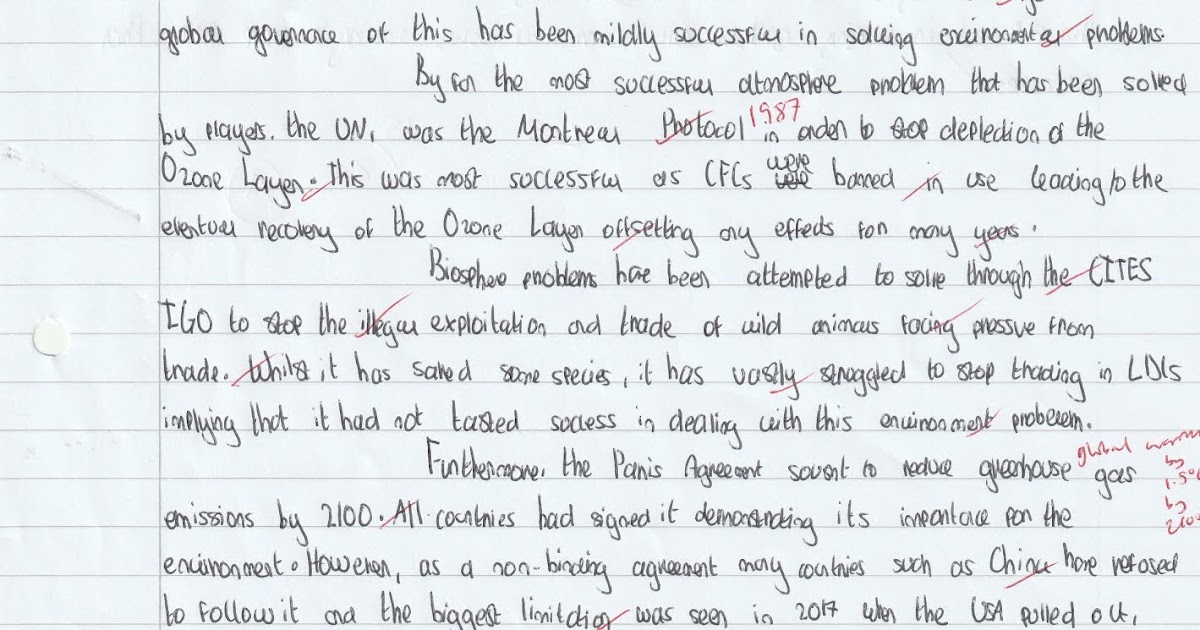 global governance of this has been mildly successful in solving environmental problems.
By far the most successful atmosphere problem that has been solved
by players. the UN, was the Montreal Protocol 1987 in order to stop depletion of the
Ozone Layer. This was most successful as CFCs were banned in use leading to the
eventual recovery of the Ozone Layer offsetting any effects for many years.
Biosphere problems have been attempted to solve through the CITES
IGO to stop the illegal exploitation and trade of wild animals facing pressure from
trade. Whilst it has saved some species, it has vastly struggled to stop trading in LDCs
implying that it had not tasted success in dealing with this environment problem.
global warming
Furthermore, the Paris Agreement sought to reduce greenhouse gas
by
1.5°
by
2100
emissions by 2100. All countries had signed it demonstrating its importance for the
environment. However, as a non-binding agreement many countries such as China have refused
to follow it and the biggest limitation was seen in 2017 when the USA pulled out,